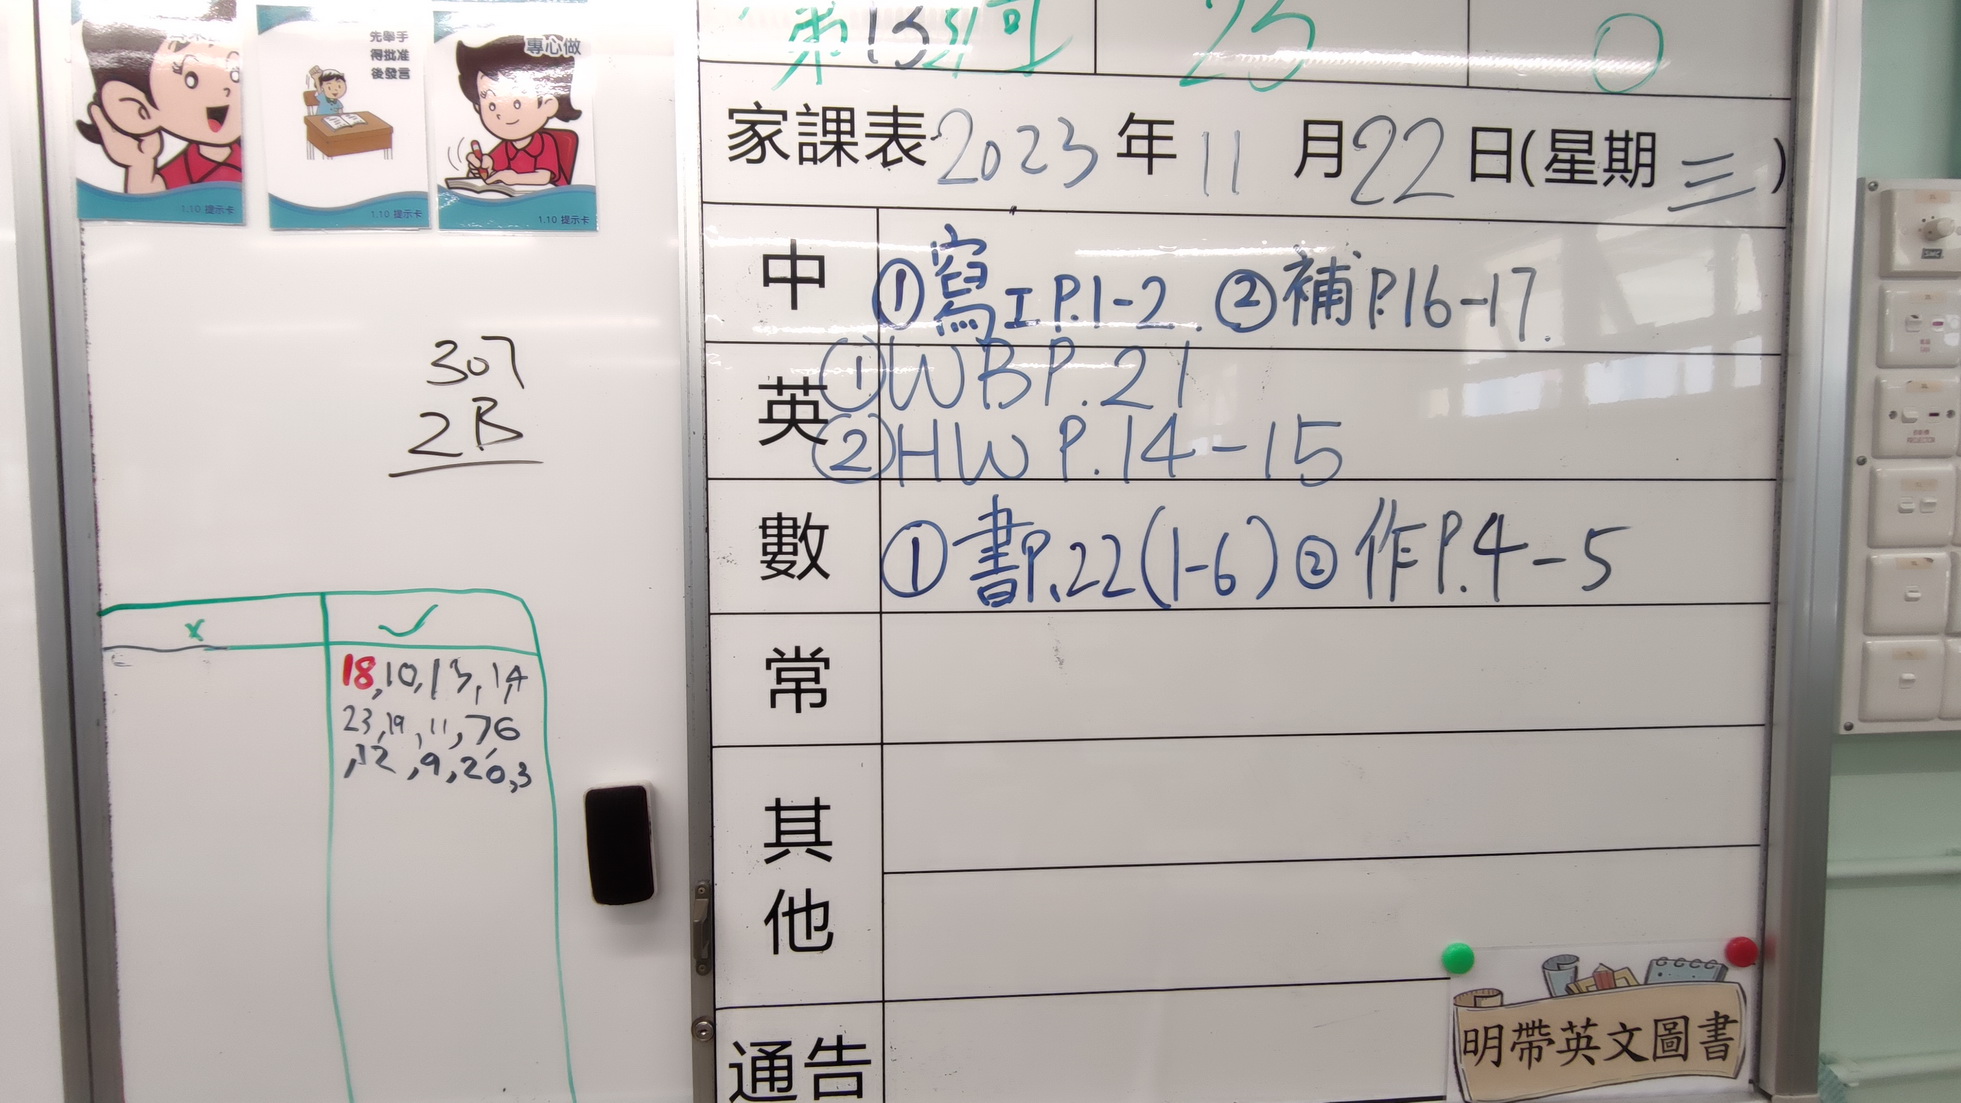 先舉手
得批准
後發言
專心做
1.10 提示卡
1.10 提示卡
1.10 提示卡
307
2B
x ✓
18,10,13,14
23,19,11,76
,12,9,20,3
第 25 0
家課表 2023 年 11 月 22 日(星期三)
中 ①寫工P.1-2. ②補P.16-17.
英 ①WBP.21
②HW P.14-15
數 ①書P.22(1-6) ②作P.4-5
常
其他
通告
明帶英文圖書